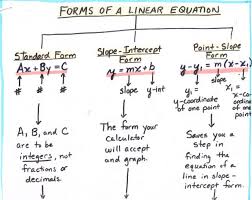 FORMS OF A LINEAR EQUATION
Standard Form
Ax + By = C
# # #
A, B, and C
are to be
integers, not
fractions or
decimals.
Slope-Intercept
Form
y = mx + b
slope y-int
The form your
calculator
will accept
and graph.
Point-Slope
Form
y - y₁ = m(x - x₁)
y₁ = slope x₁ =
y-coordinate
of one point
of one point
Saves you a
step in
finding the
equation of a
line in slope-
intercept form.